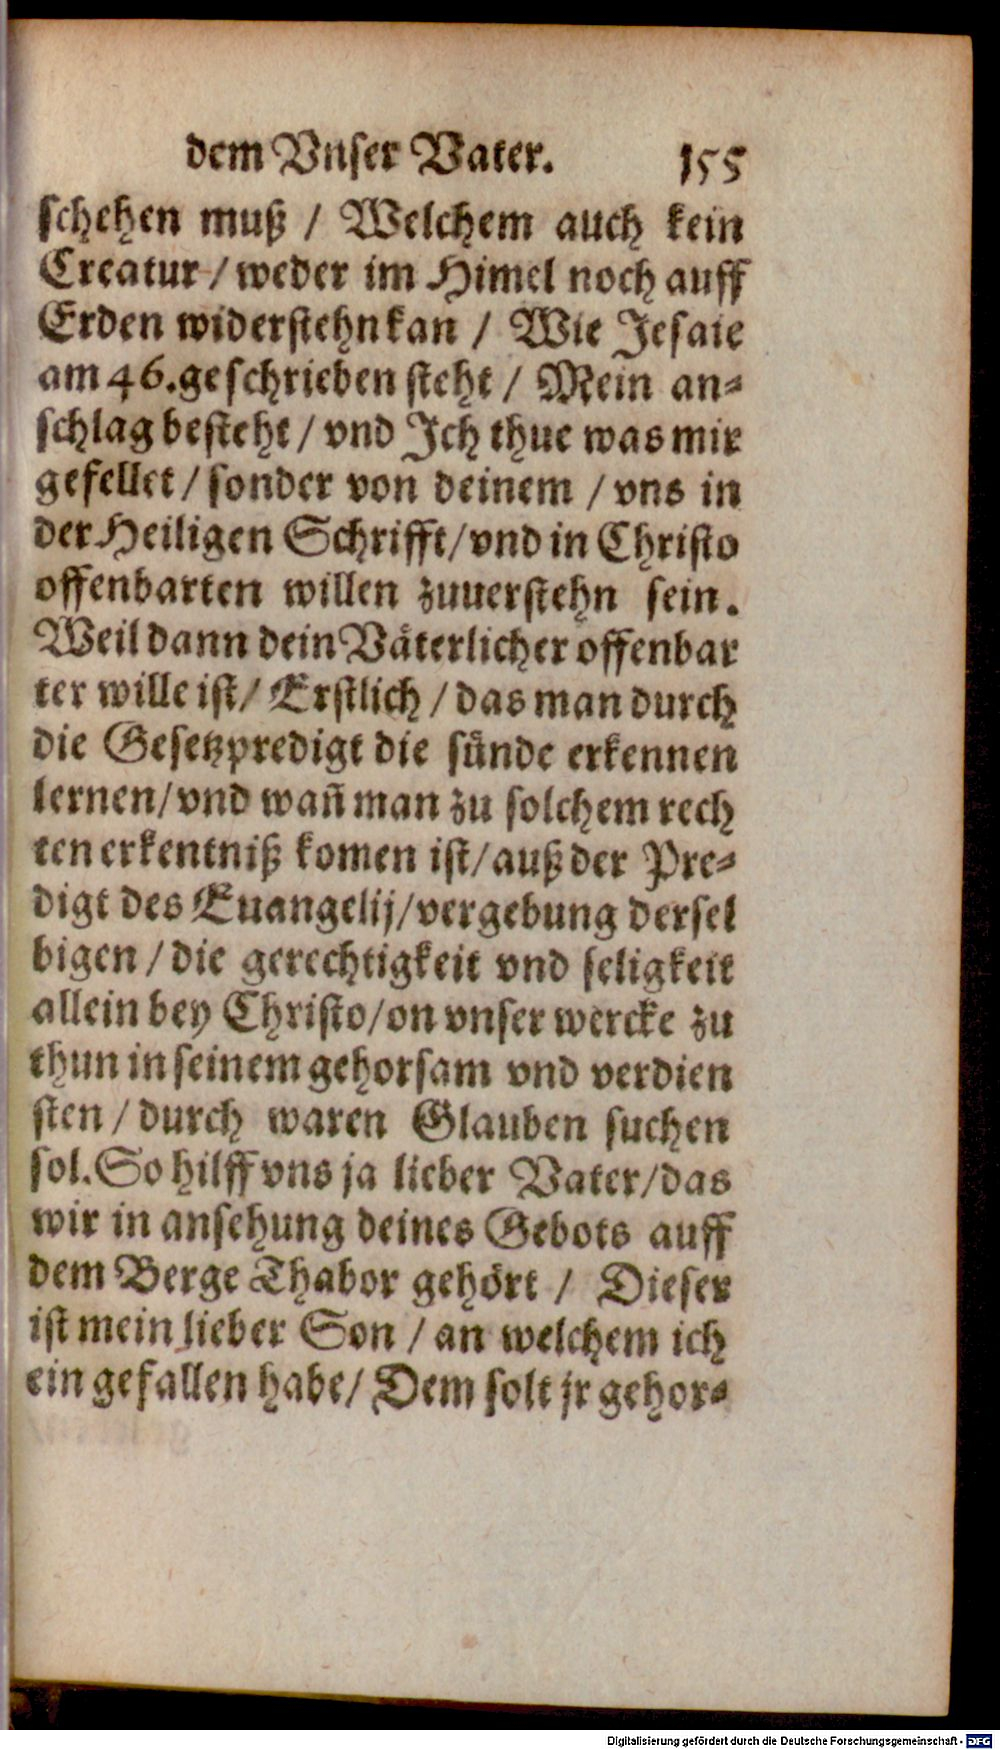 dem Vnser Vater. 155
schehen muß / Welchem auch kein
Creatur / weder im Himel noch auff
Erden widerstehn kan / Wie Jesaie
am 46. geschrieben steht / Mein an⸗
schlag besteht / vnd Ich thue was mir
gefellet / sonder von deinem / vns in
der Heiligen Schrifft / vnd in Christo
offenbarten willen zuuerstehn sein.
Weil dann dein Väterlicher offenbar
ter wille ist / Erstlich / das man durch
die Gesetzpredigt die sünde erkennen
lernen / vnd wañ man zu solchem rech
ten erkentniß komen ist / auß der Pre⸗
digt des Euangelij / vergebung dersel
bigen / die gerechtigkeit vnd seligkeit
allein bey Christo / on vnser wercke zu
thun in seinem gehorsam vnd verdien
sten / durch waren Glauben suchen
sol. So hilff vns ja lieber Vater / das
wir in ansehung deines Gebots auff
dem Berge Thabor gehört / Dieser
ist mein lieber Son / an welchem ich
ein gefallen habe / Dem solt jr gehor⸗
Digitalisierung gefördert durch die Deutsche Forschungsgemeinschaft - DFG